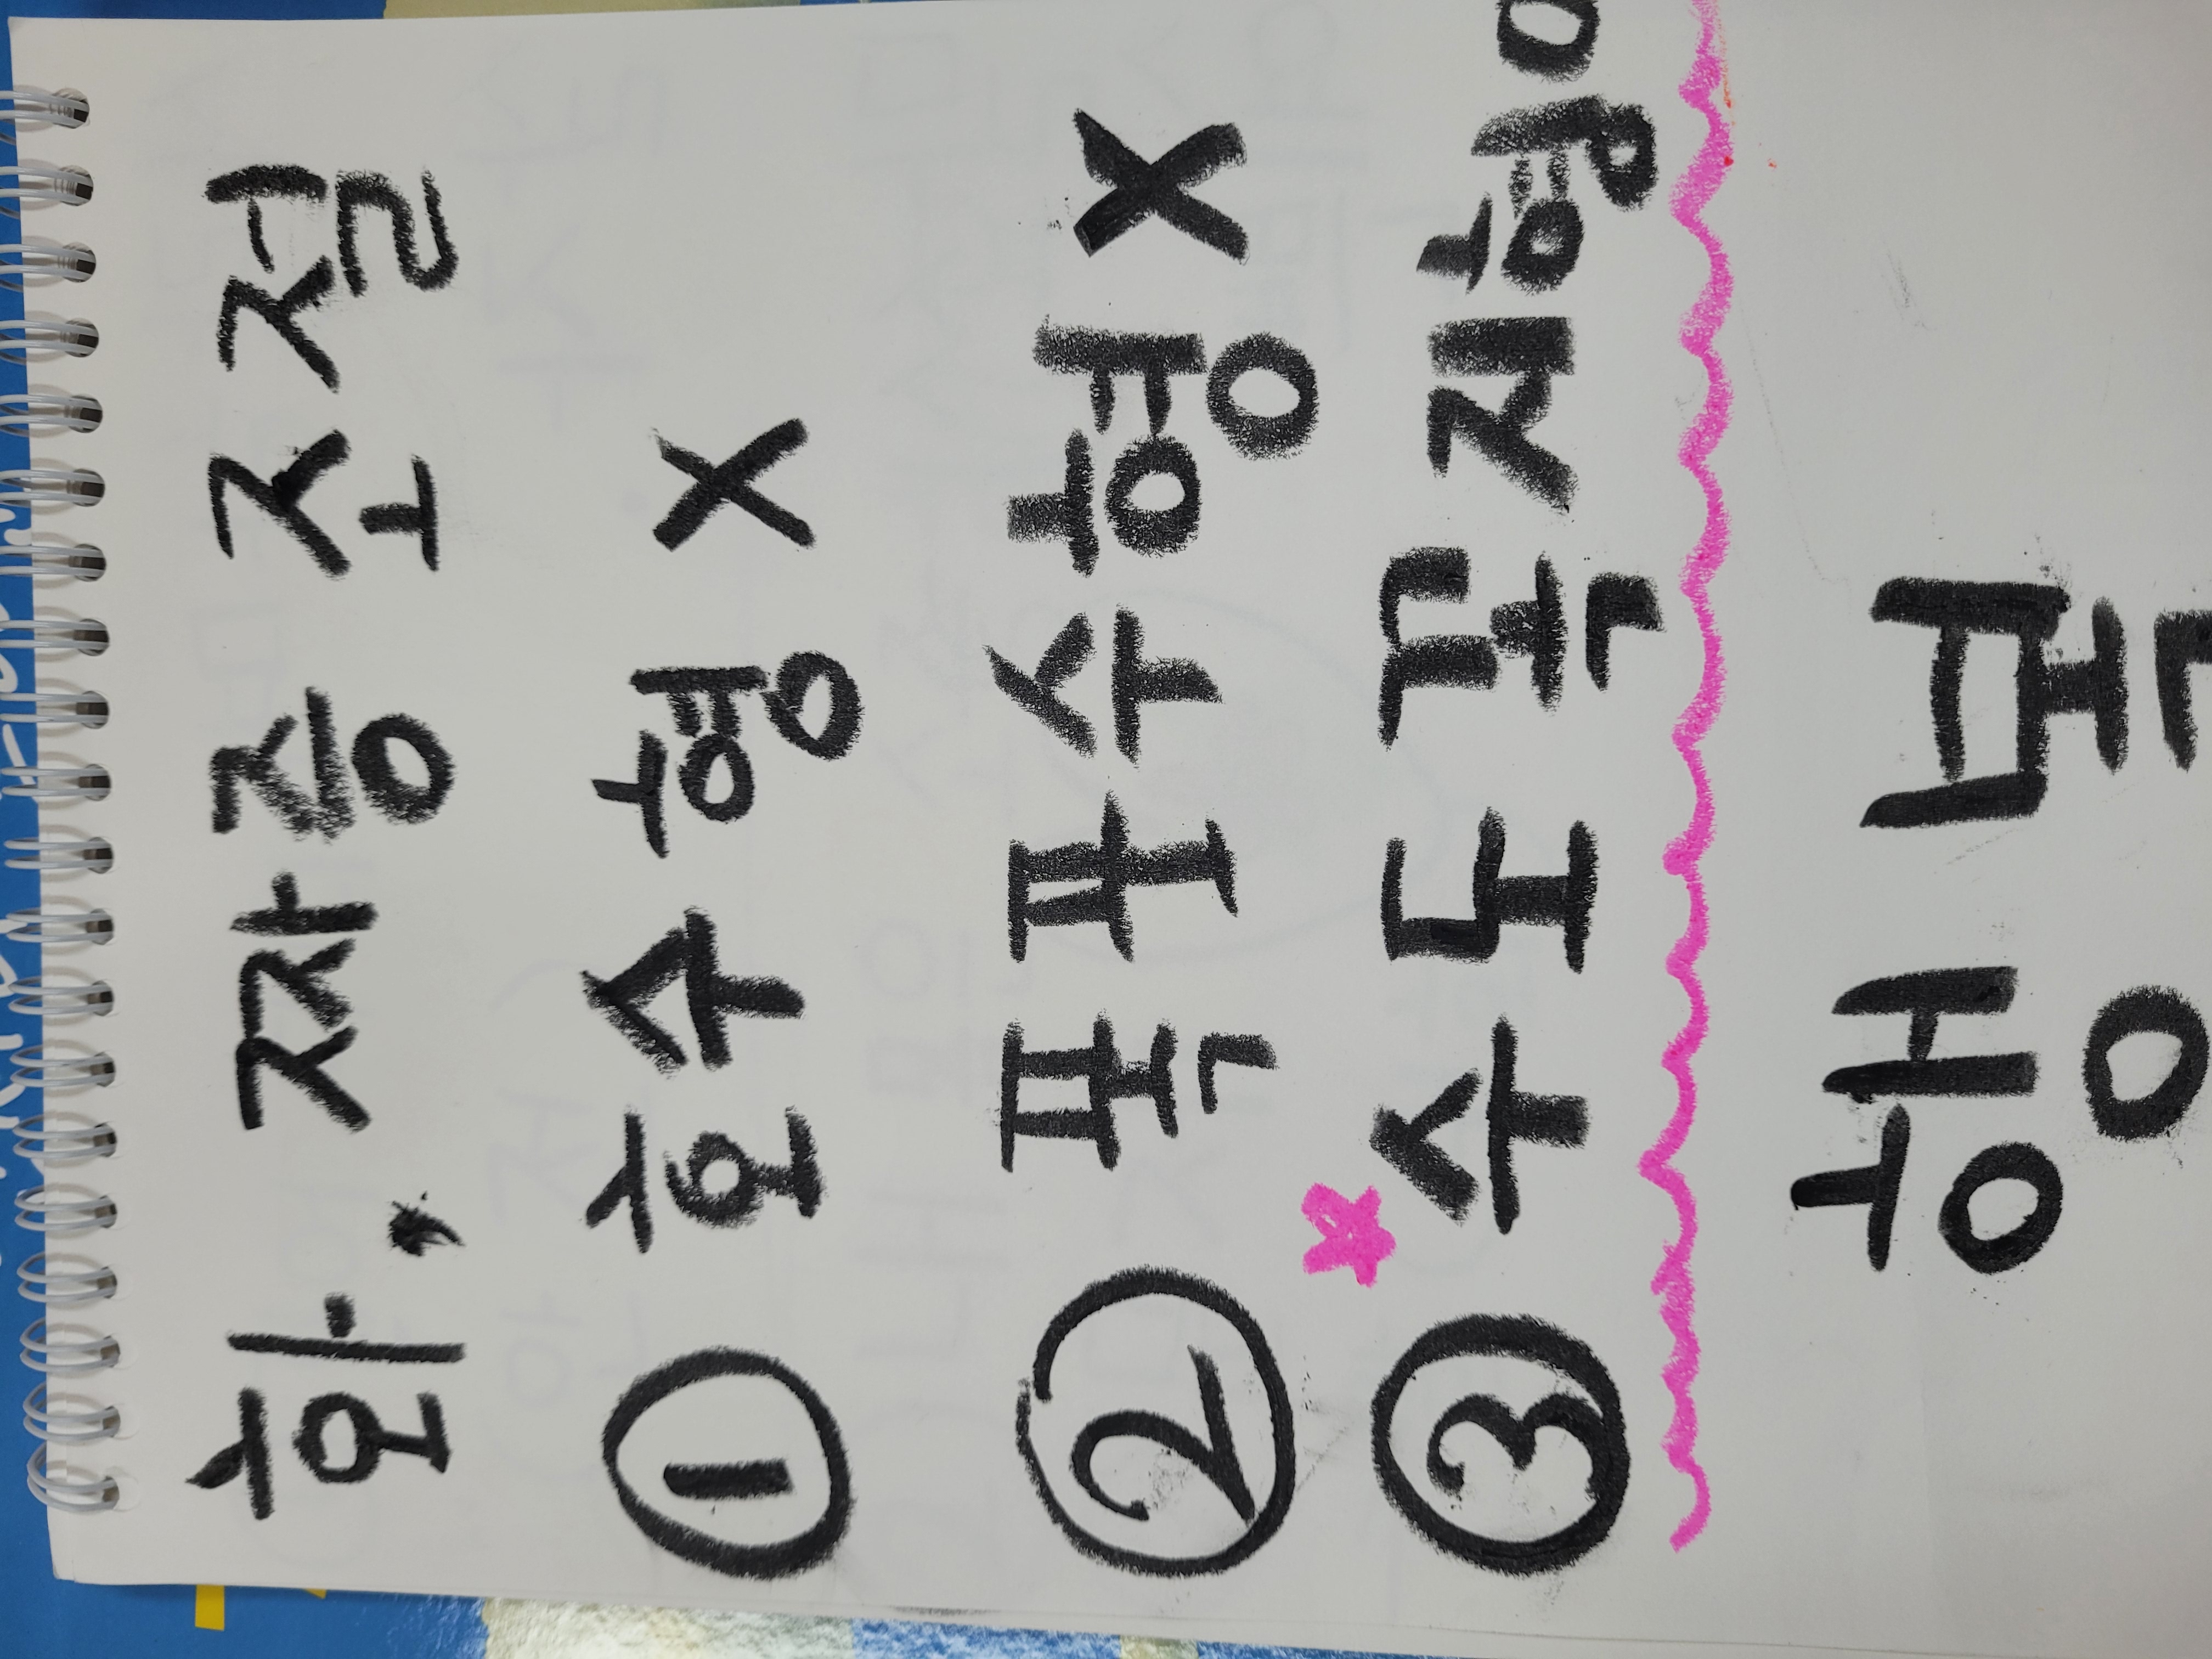 화, 짜증 조절
① 호수형 X
② 폭포수형 X
③ 수도꼭지형 O
행복